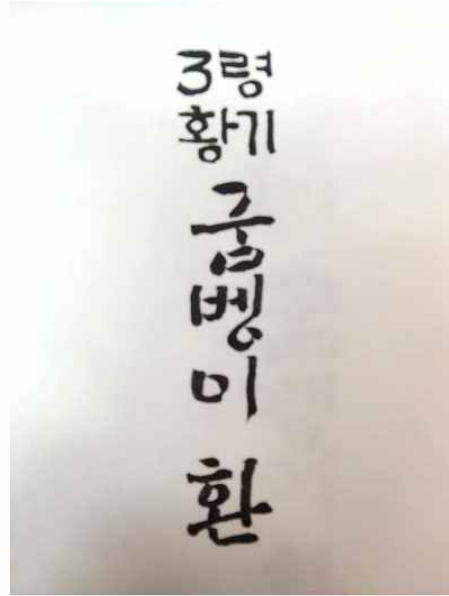 3령
황기
굼
벵
이
환